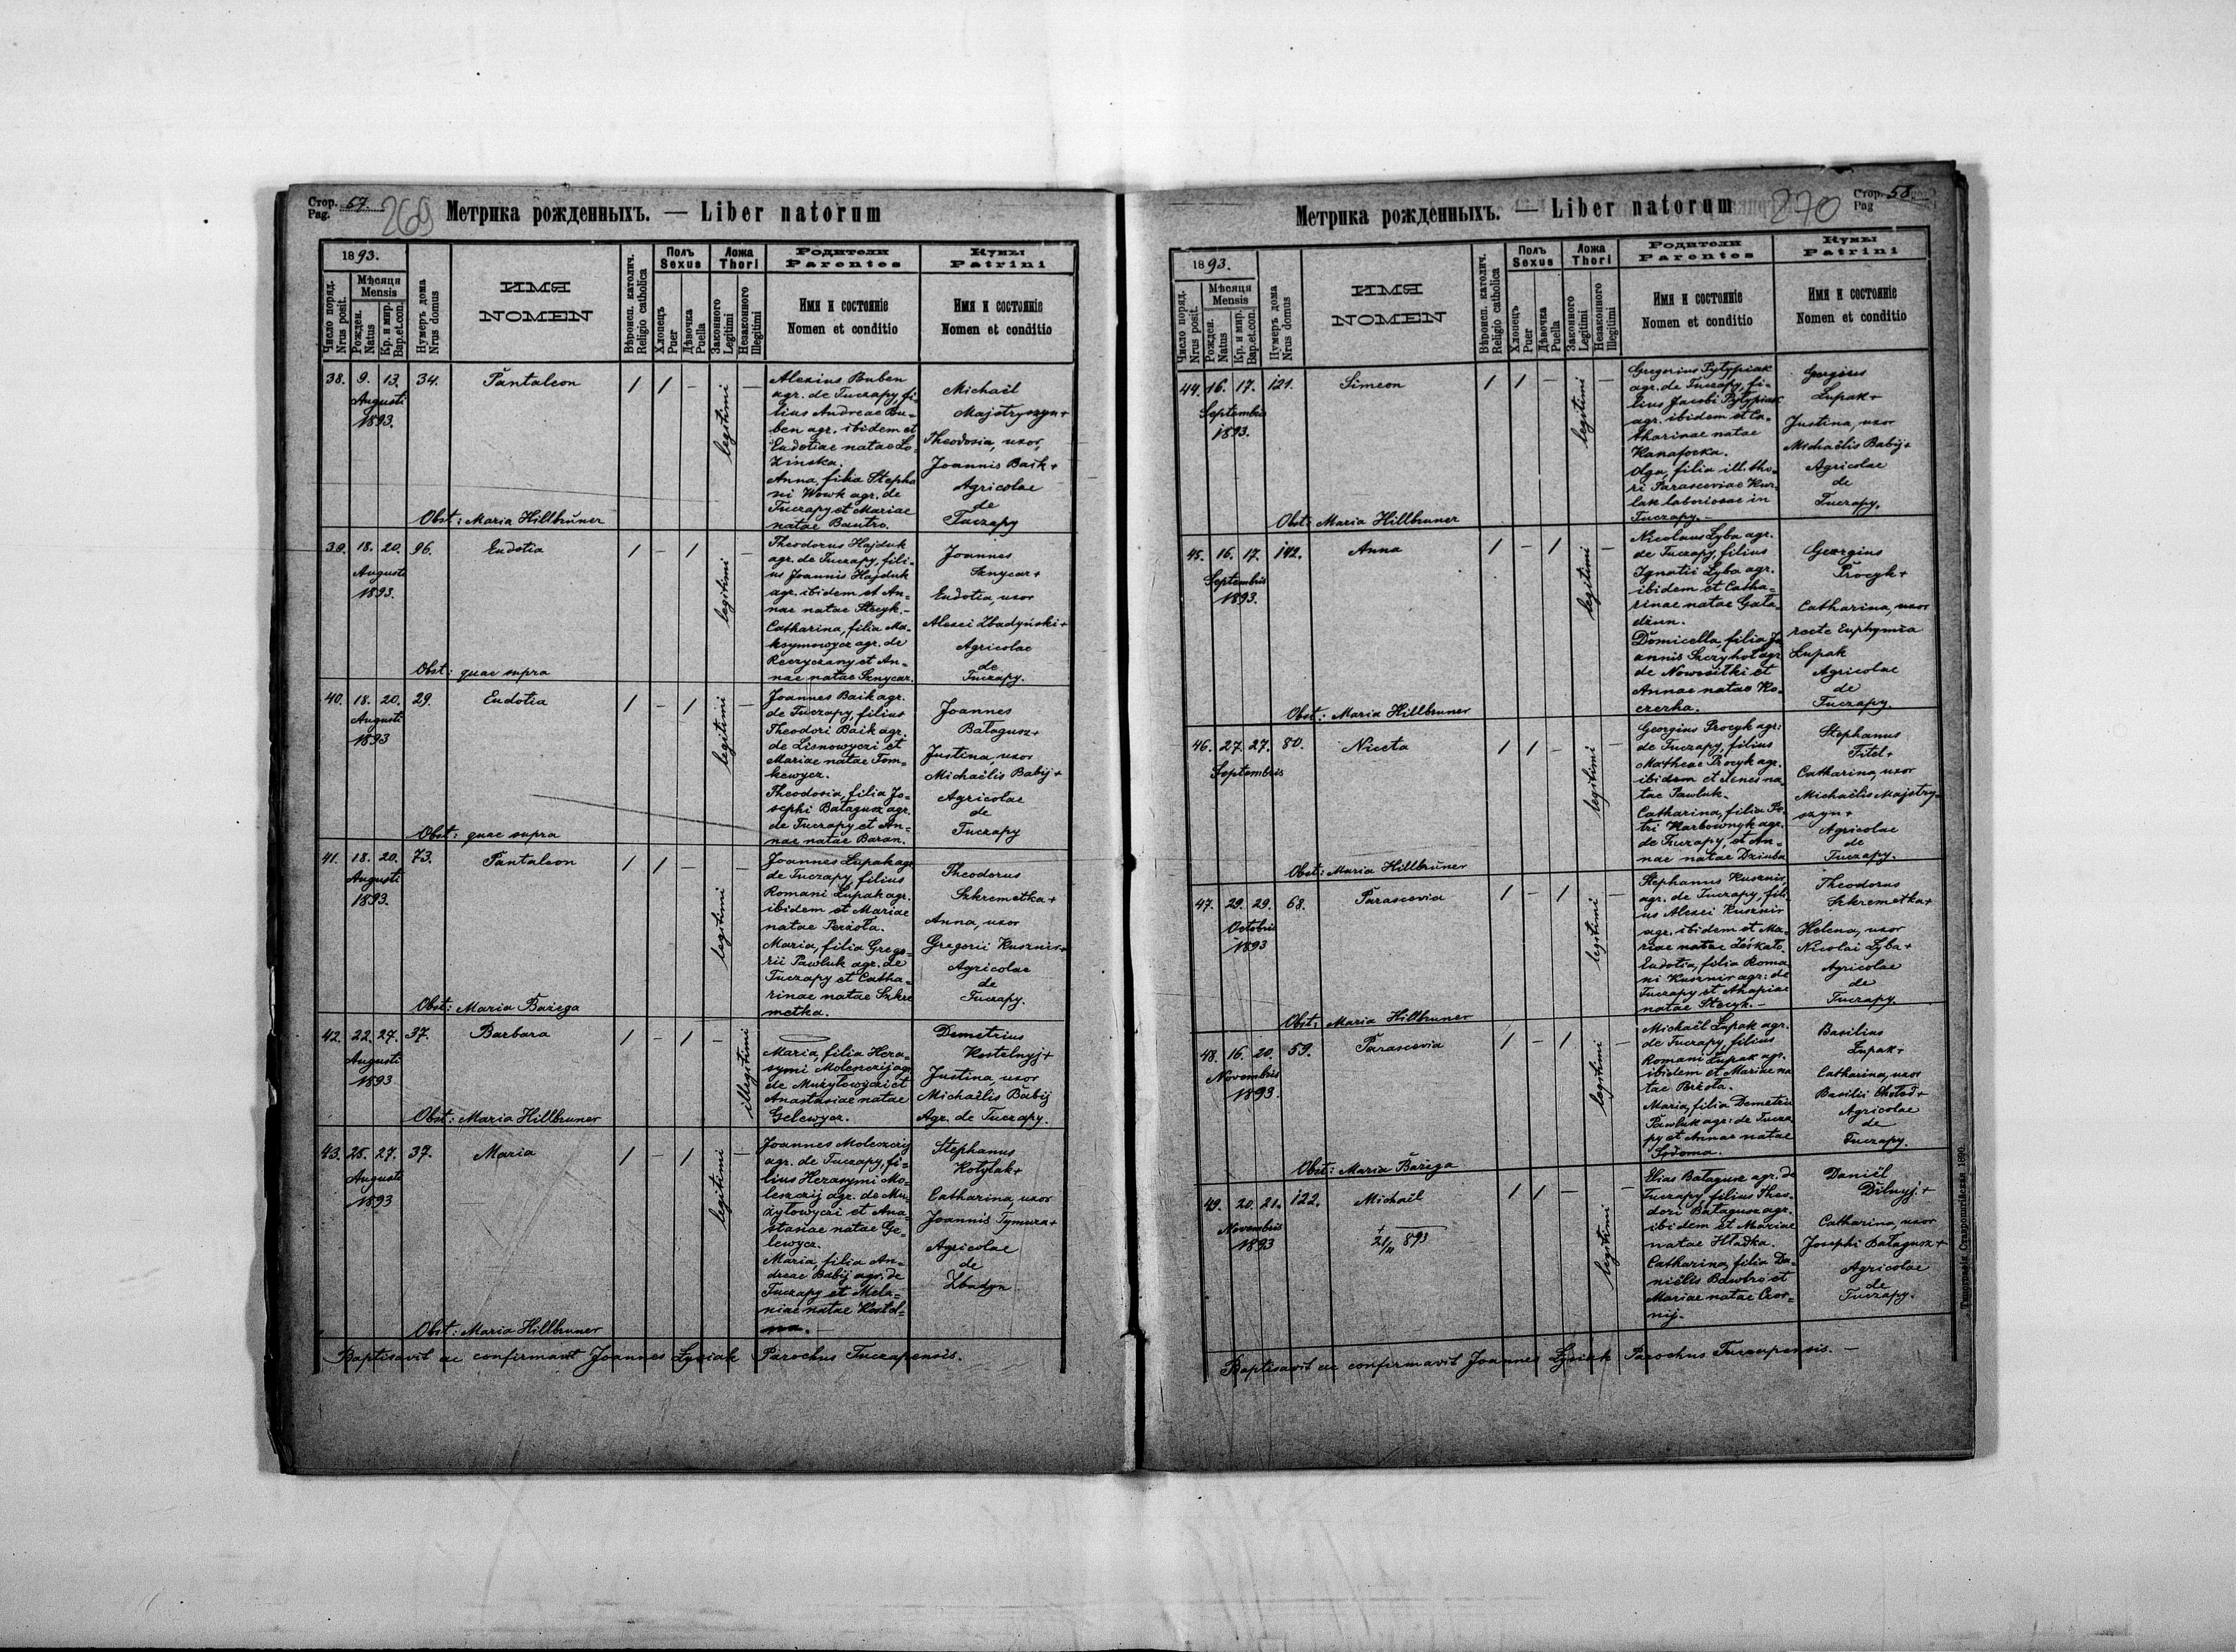 Стор. 57.
Pag.
269
Метрика рожденныхъ. — Liber natorum
1893.
Число поряд.
Nrus posit.
Мѣсяця
Mensis
Рожден.
Natus
Кр. и мир.
Bap.et.con.
Нумеръ дома
Nrus domus
ИМЯ
NOMEN
Вѣроисп. католич.
Religio catholica
Полъ
Sexus
Хлопець
Puer
Дѣвочка
Puella
Ложа
Thori
Законного
Legitimi
Незаконного
Illegitimi
Родители
Parentes
Имя и состояніе
Nomen et conditio
Кумы
Patrini
Имя и состояніе
Nomen et conditio
38. 9. 13. 34. Pantaleon 1 1 – legitimi –
Augusti
1893.
Alexius Buben
agr. de Tuczapy, fi-
lius Andreae Bu-
ben agr. ibidem et
Eudotiae natae Lo-
zinska.
Anna, filia Stepha
ni Wowk agr. de
Tuczapy et Mariae
natae Bautro.
Michaël
Majstryszyn+
Theodosia, uxor
Joannis Baik+
Agricolae
de
Tuczapy
Obst: Maria Hillbruner
39. 18. 20. 96. Eudotia 1 – 1 legitimi –
Augusti
1893.
Theodorus Hajduk
agr. de Tuczapy, fili-
us Joannis Hajduk
agr. ibidem et An-
nae natae Stecyk.-
Catharina, filia Ma-
ksymowycz agr. de
Reczyczany et An-
nae natae Sznycar.
Joannes
Sznycar+
Eudotia, uxor
Alexei Zbadyński+
Agricolae
de
Tuczapy.
Obst: quae supra
40. 18. 20. 29. Eudotia 1 – 1 legitimi –
Augusti
1893
Joannes Baik agr.
de Tuczapy, filius
Theodori Baik agr.
de Lisnowyczi et
Mariae natae Tom-
kewycz.
Theodosia, filia Jo-
sephi Bałagusz agr.
de Tuczapy et An-
nae natae Baran.
Joannes
Bałagusz+
Justina, uxor
Michaëlis Babij+
Agricolae
de
Tuczapy
Obst: quae supra
41. 18. 20. 73. Pantaleon 1 1 – legitimi –
Augusti
1893.
Joannes Łupak agr
de Tuczapy, filius
Romani Łupak agr.
ibidem et Mariae
natae
Maria, filia Grego-
rii Pawluk agr. de
Tuczapy et Catha-
rinae natae Szkre
metka.
Theodorus
Szkremetka+
Anna, uxor
Gregorii Kusznir+
Agricolae
de
Tuczapy.
Obst: Maria Bařega
42. 22. 27. 37. Barbara 1 – 1 – illegitimi
Augusti
1893
Maria, filia Hera-
symi Moleszczij agr
de Mużyłowyczi et
Anastasiae natae
Gelewycz.
Demetrius
Kostelnyj+
Justina, uxor
Michaëlis Babij
Agr. de Tuczapy.
Obst: Maria Hillbruner
43. 25. 27. 37. Maria 1 – 1 legitimi –
Augusti
1893
Joannes Moleszczij
agr. de Tuczapy, fi-
lius Herasymi Mo-
leszczij agr. de Mu-
żyłowyczi et Ana-
stasiae natae Ge-
lewycz.
Maria, filia An-
dreae Babij agr. de
Tuczapy et Mela-
niae natae Kostel-
na. —
Stephanus
Kotylak+
Catharina, uxor
Joannis Tymura+
Agricolae
de
Zbadyn
Obst: Maria Hillbruner
Baptisavit ac confirmavit Joannes Łysiak Parochus Tuczapensis.
Стор. 58.
Pag
270
Метрика рожденныхъ. — Liber natorum
1893.
Число поряд.
Nrus posit.
Мѣсяця
Mensis
Рожден.
Natus
Кр. и мир.
Bap.et.con.
Нумеръ дома
Nrus domus
ИМЯ
NOMEN
Вѣроисп. католич.
Religio catholica
Полъ
Sexus
Хлопець
Puer
Дѣвочка
Puella
Ложа
Thori
Законного
Legitimi
Незаконного
Illegitimi
Родители
Parentes
Имя и состояніе
Nomen et conditio
Кумы
Patrini
Имя и состояніе
Nomen et conditio
44. 16. 17. 121. Simeon 1 1 – legitimi –
Septembris
1893.
Gregorius Pyłypiak
agr. de Tuczapy, fi-
lius Jacobi Pyłypiak
agr. ibidem et Ca-
tharinae natae
Kanafocka.
Olga, filia ill. tho-
ri Parasceviae Kur-
lak laboriosae in
Tuczapy.—
Georgius
Łupak+
Justina, uxor
Michaëlis Babij+
Agricolae
de
Tuczapy.
Obst: Maria Hillbruner
45. 16. 17. 142. Anna 1 – 1 legitimi –
Septembris
1893.
Nicolaus Łyba agr.
de Tuczapy, filius
Ignatii Łyba agr.
ibidem et Catha-
rinae natae Gała-
dżun.
Domicella, filia Jo-
annis Szczyhoł agr
de Nowosiłki et
Annae natae Ko-
czerha.
Georgius
Procyk+
Catharina, uxor
recte Euphymia
Łupak
Agricolae
de
Tuczapy.
Obst: Maria Hillbruner
46. 27. 27. 80. Niceta 1 1 – legitimi –
Septembris
Georgius Procyk agr:
de Tuczapy, filius
Matheae Procyk agr.
ibidem et Xenes na-
tae Pawluk.
Catharina, filia Pe-
tri Harbownyk agr.
de Tuczapy, et An-
nae natae Dziuba
Stephanus
Titel+
Catharina, uxor
Michaëlis Majstry-
szyn+
Agricolae
de
Tuczapy.
Obst: Maria Hillbruner
47. 29. 29. 68. Parascevia 1 – 1 legitimi –
Octobris
1893
Stephanus Kusznir
agr. de Tuczapy, fili-
us Alexei Kusznir
agr. ibidem et Ma-
riae natae
Eudotia, filia Roma
ni Kusznir agr: de
Tuczapy et Ahapiae
natae Stecyk.—
Theodorus
Szkremetka+
Helena, uxor
Nicolai Łyba+
Agricolae
de
Tuczapy.
Obst: Maria Hillbruner
48. 16. 20. 59. Parascevia 1 – 1 legitimi –
Novembris
1893.
Michaël Łupak agr.
de Tuczapy, filius
Romani Łupak agr.
ibidem et Mariae na
tae
Maria, filia Demetrii
Pawluk agr: de Tucza
py et Annae natae
Sydoma.
Basilius
Łupak+
Catharina, uxor
Basilii Chołod+
Agricolae
de
Tuczapy.
Obst: Maria Bařega
49. 20. 21. 122. Michaël 1 1 – legitimi –
Novembris
1893
+
21/11 893
Elias Bałagusz agr. de
Tuczapy, filius Theo-
dori Bałagusz agr.
ibidem et Mariae
natae Hładka.
Catharina, filia Da-
niëlis Bawtro et
Mariae natae Czor-
nij.
Daniël
Dilnyj.+
Catharina, uxor
Josephi Bałagusz+
Agricolae
de
Tuczapy.
Baptisavit ac confirmavit Joannes Łysiak Parochus Tuczapensis.—
Типографія Ставропигійская 1890.